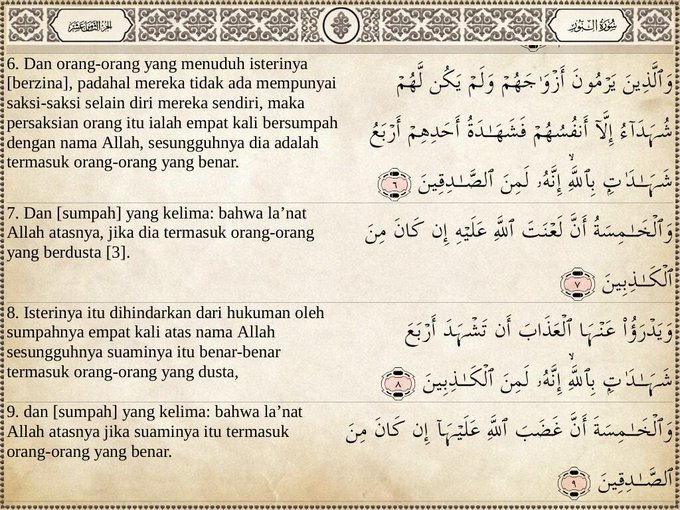 الجزء الثامن عشر
سُورَةُ النُّورِ
6. Dan orang-orang yang menuduh isterinya
[berzina], padahal mereka tidak ada mempunyai
saksi-saksi selain diri mereka sendiri, maka
persaksian orang itu ialah empat kali bersumpah
dengan nama Allah, sesungguhnya dia adalah
termasuk orang-orang yang benar.
وَٱلَّذِينَ يَرْمُونَ أَزْوَٰجَهُمْ وَلَمْ يَكُن لَّهُمْ
شُهَدَآءُ إِلَّآ أَنفُسُهُمْ فَشَهَـٰدَةُ أَحَدِهِمْ أَرْبَعُ
شَهَـٰدَٰتٍۭ بِٱللَّهِ ۙ إِنَّهُۥ لَمِنَ ٱلصَّـٰدِقِينَ ٦
7. Dan [sumpah] yang kelima: bahwa la’nat
Allah atasnya, jika dia termasuk orang-orang
yang berdusta [3].
وَٱلْخَـٰمِسَةُ أَنَّ لَعْنَتَ ٱللَّهِ عَلَيْهِ إِن كَانَ مِنَ
ٱلْكَـٰذِبِينَ ٧
8. Isterinya itu dihindarkan dari hukuman oleh
sumpahnya empat kali atas nama Allah
sesungguhnya suaminya itu benar-benar
termasuk orang-orang yang dusta,
وَيَدْرَؤُا۟ عَنْهَا ٱلْعَذَابَ أَن تَشْهَدَ أَرْبَعَ
شَهَـٰدَٰتٍۭ بِٱللَّهِ ۙ إِنَّهُۥ لَمِنَ ٱلْكَـٰذِبِينَ ٨
9. dan [sumpah] yang kelima: bahwa la’nat
Allah atasnya jika suaminya itu termasuk
orang-orang yang benar.
وَٱلْخَـٰمِسَةَ أَنَّ غَضَبَ ٱللَّهِ عَلَيْهَآ إِن كَانَ مِنَ
ٱلصَّـٰدِقِينَ ٩